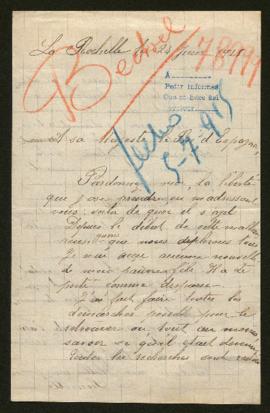 La Rochelle le 24 juin 1915
Bechel
78999
A
Pedir informes
5-7-915
sa Majesté le Roi d'Espagne,
Pardonnez moi, la liberté
que j'ose prendre en m'adressant
vous, voila de quoi il s'agit
Depuis le debut de cette malheu
que nous deplorons tous
Je n'ai reçu aucune nouvelle
de mon pauvre fils. Il a été
porté comme disparu.
J'ai fait faire toutes les
demarches possible pour le
retrouver ou tout au moins,
savoir ce qu'il était devenu.
Toutes les recherches sont